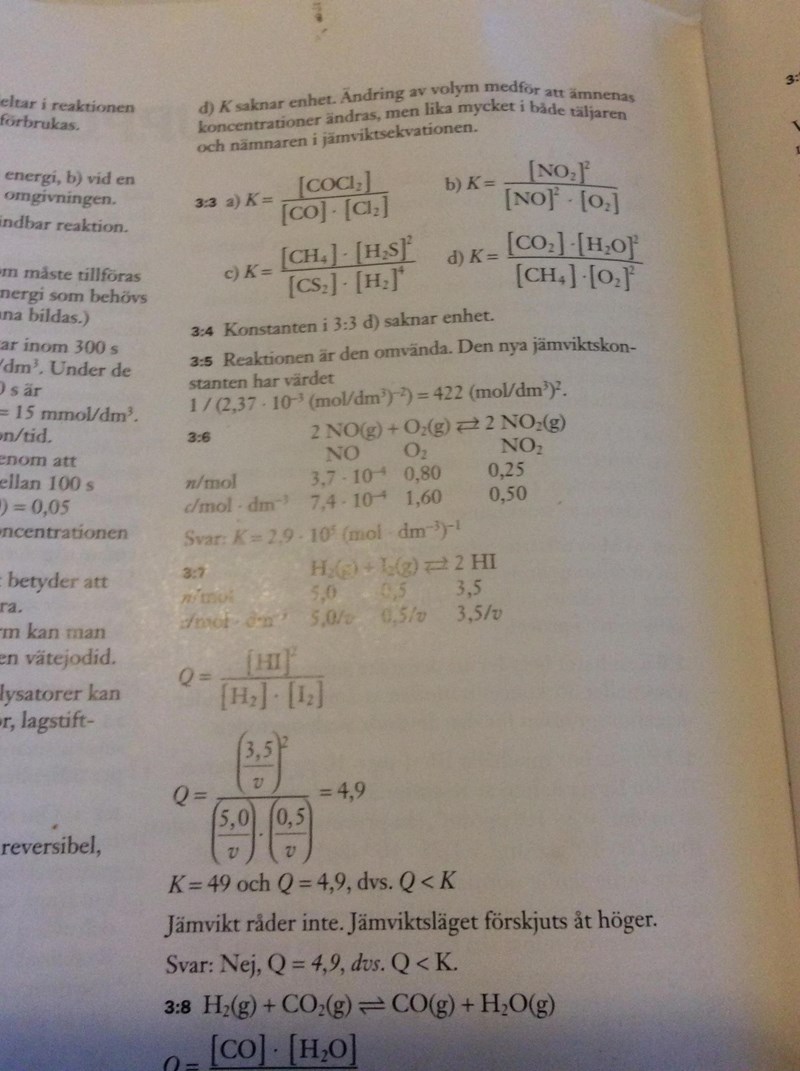 eltar i reaktionen
förbrukas.
energi, b) vid en
omgivningen.
ndbar reaktion.
m måste tillföras
nergi som behövs
na bildas.)
ar inom 300 s
/dm³. Under de
0 s är
= 15 mmol/dm³.
on/tid.
enom att
ellan 100 s
) = 0,05
ncentrationen
betyder att
ra.
rm kan man
en vätejodid.
lysatorer kan
or, lagstift-
reversibel,
d) K saknar enhet. Ändring av volym medför att ämnenas
koncentrationer ändras, men lika mycket i både täljaren
och nämnaren i jämviktsekvationen.
3:3 a) K = [COCl₂] / [CO] · [Cl₂] b) K = [NO₂]² / [NO]² · [O₂]
c) K = [CH₄] · [H₂S]² / [CS₂] · [H₂]⁴ d) K = [CO₂] · [H₂O]² / [CH₄] · [O₂]²
3:4 Konstanten i 3:3 d) saknar enhet.
3:5 Reaktionen är den omvända. Den nya jämviktskon-
stanten har värdet
1 / (2,37 · 10⁻³ (mol/dm³)⁻²) = 422 (mol/dm³)².
3:6 2 NO(g) + O₂(g) ⇌ 2 NO₂(g)
NO O₂ NO₂
n/mol 3,7 · 10⁻⁴ 0,80 0,25
c/mol · dm⁻³ 7,4 · 10⁻⁴ 1,60 0,50
Svar: K = 2,9 · 10⁵ (mol · dm⁻³)⁻¹
3:7 H₂(g) + I₂(g) ⇌ 2 HI
n/mol 5,0 0,5 3,5
c/mol · dm⁻³ 5,0/v 0,5/v 3,5/v
Q = [HI]² / [H₂] · [I₂]
Q = (3,5/v)² / (5,0/v) · (0,5/v) = 4,9
K = 49 och Q = 4,9, dvs. Q < K
Jämvikt råder inte. Jämviktsläget förskjuts åt höger.
Svar: Nej, Q = 4,9, dvs. Q < K.
3:8 H₂(g) + CO₂(g) ⇌ CO(g) + H₂O(g)
Q = [CO] · [H₂O]